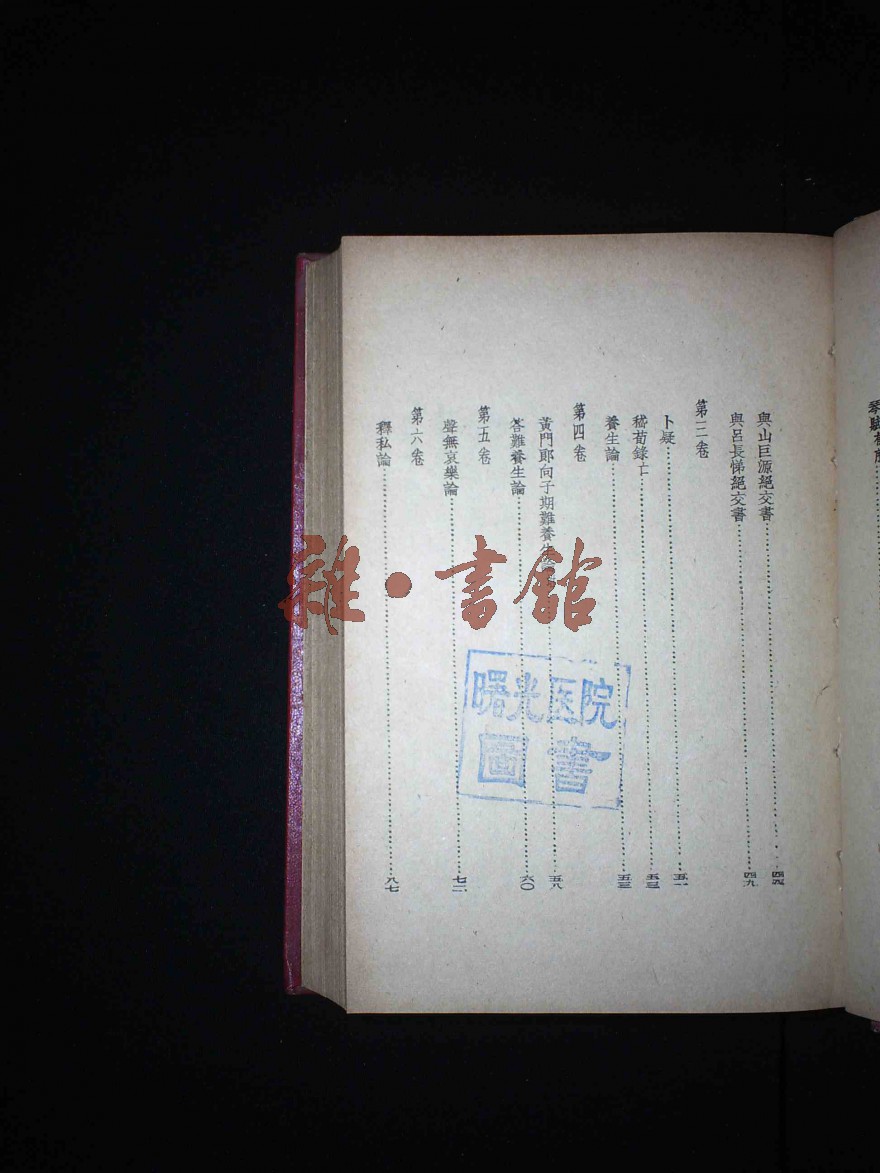 與山巨源絕交書……四四
與呂長悌絕交書……四九
第三卷
卜疑……五一
嵇荀錄亡……五三
養生論……五三
第四卷
黃門郎向子期難養生論……五八
答難養生論……六〇
第五卷
聲無哀樂論……七二
第六卷
釋私論……八七
雜·書館
曙光医院
圖書